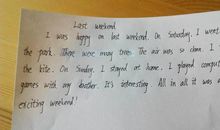 Last weekend
I was happy on last weekend. On Saturday, I went
the park. There were many trees. The air was so clean. I
the kite. On Sunday, I stayed at home. I played comput
games with my brother. It's interesting. All in all it was a
exciting weekend!